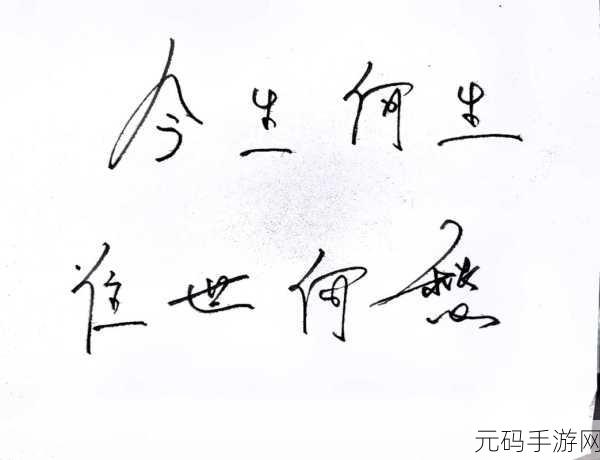 今生何生
往世何愁
元码手游网